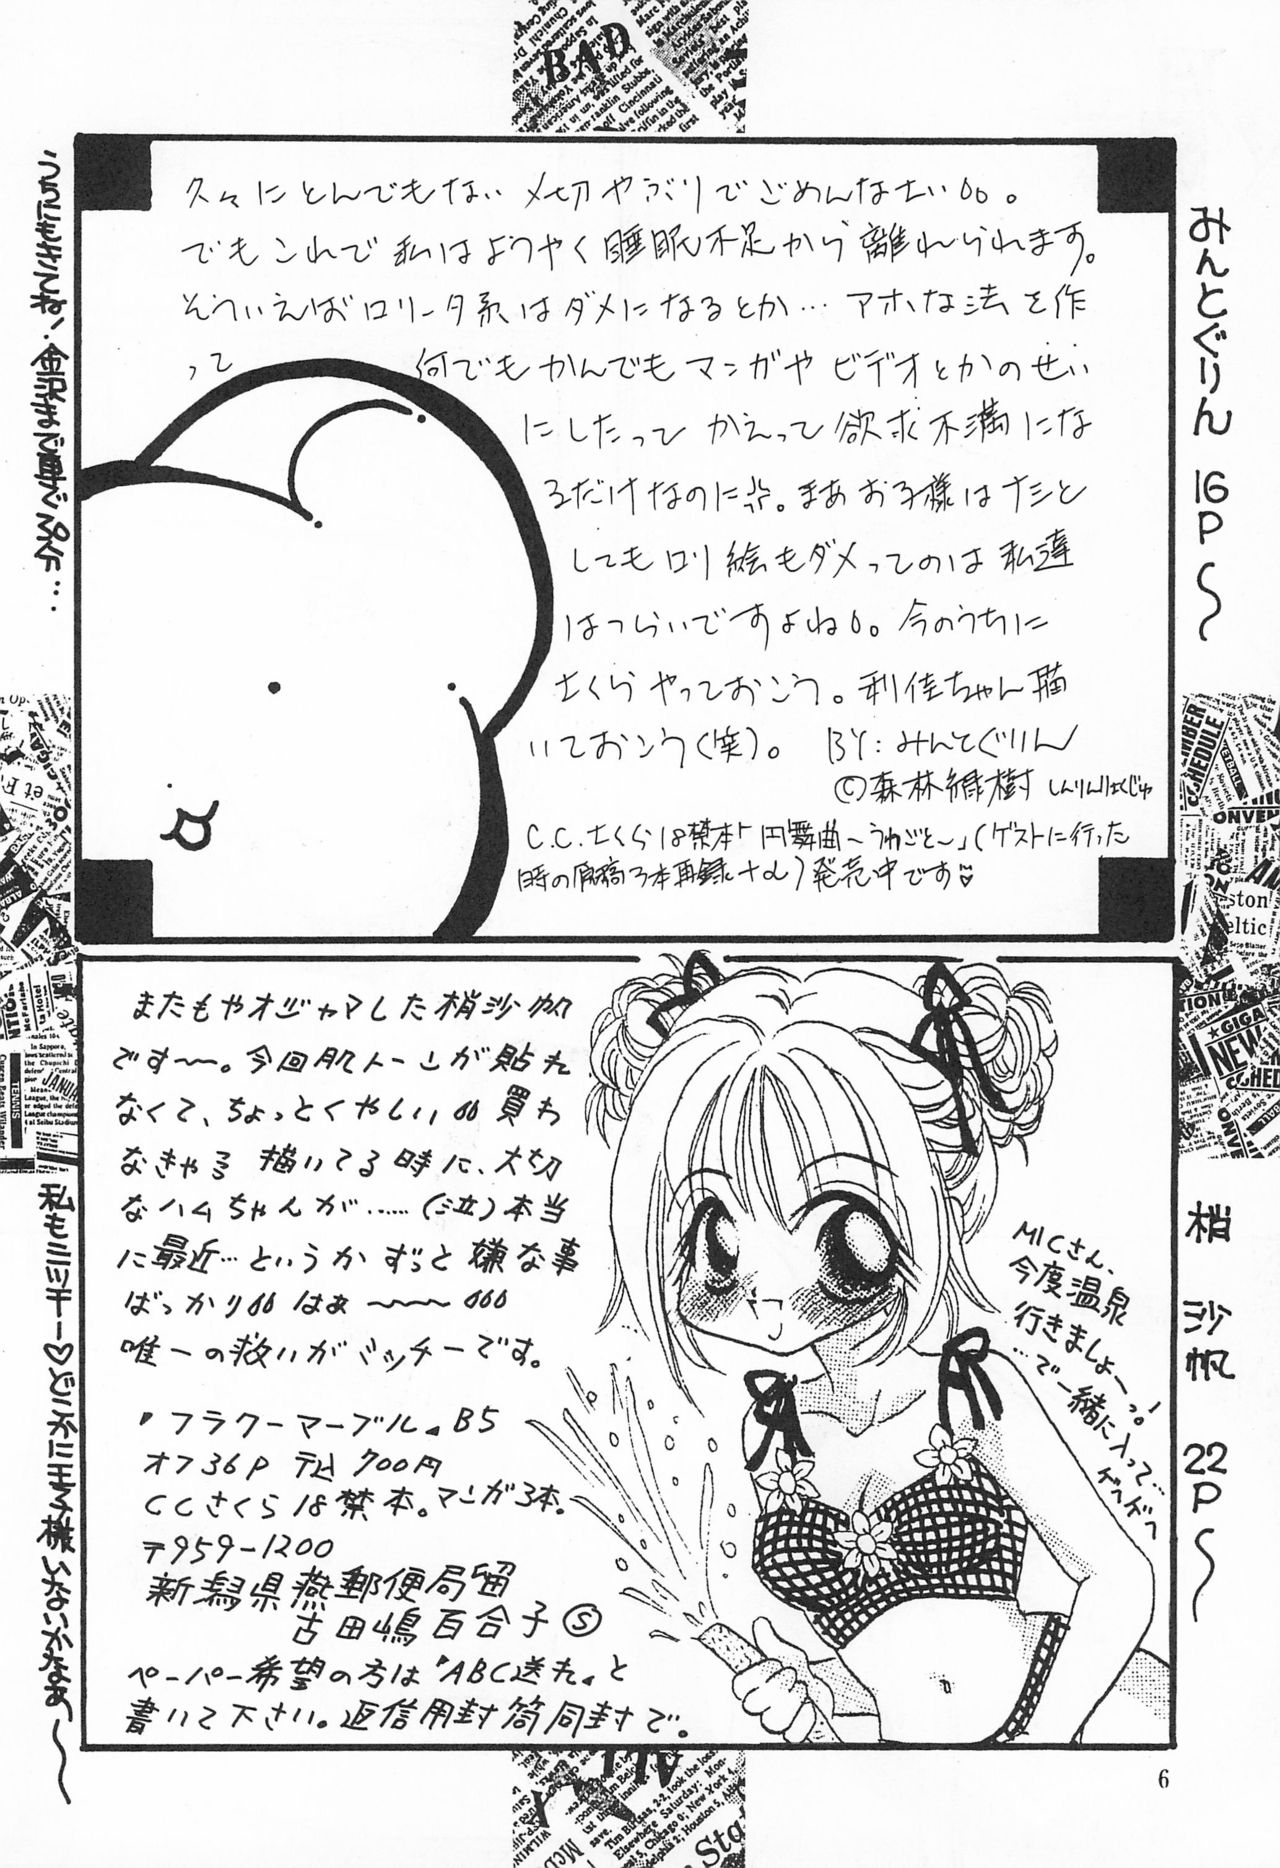 みんとぐりん 16P～
久々にとんでもない〆切やぶりでごめんなさい。
でもこれで私はようやく睡眠不足から離れられます。
そういえばロリータ系はダメになるとか…アホな法を作
って 何でもかんでもマンガやビデオとかのせい
にしたって かえって欲求不満にな
るだけなのに。まあお子様はナシと
してもロリ絵もダメってのは私達
はつらいですよね。今のうちに
さくらやっておこう。利佳ちゃん描
いておこう(笑)。 BY:みんとぐりん
©森林緑樹 しんりんりょくじゅ
C.C.さくら18禁本「円舞曲～うわごと～」(ゲストに行った
時の原稿3本再録+α)発売中です♡
うちにもきてね!金沢まで車で
梢 沙帆 22P～
またもやオジャマした梢沙帆
です～。今回肌トーンが貼れ
なくて、ちょっとくやしい 買わ
なきゃる 描いてる時に、大切
なハムちゃんが……(泣)本当
に最近…というかずっと嫌な事
ばっかり はぁ～～
唯一の救いがミッチーです。
『フラクーマーブル』B5
オフ36P 〒込700円
CCさくら18禁本。マンガ3本。
〒959-1200
新潟県燕郵便局留
古田嶋百合子Ⓢ
ペーパー希望の方は『ABC送れ』と
書いて下さい。返信用封筒同封で。
MICさん、
今度温泉
行きましょーっ!
…で一緒に入って…
ゲヘゲヘ
私もミッチー♡どこかに王子様いないかなぁ～
BAD
GIGA
NEW
6